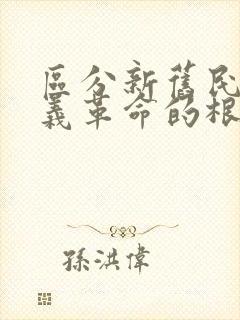 區分新舊民
義革命的根
孫洪偉